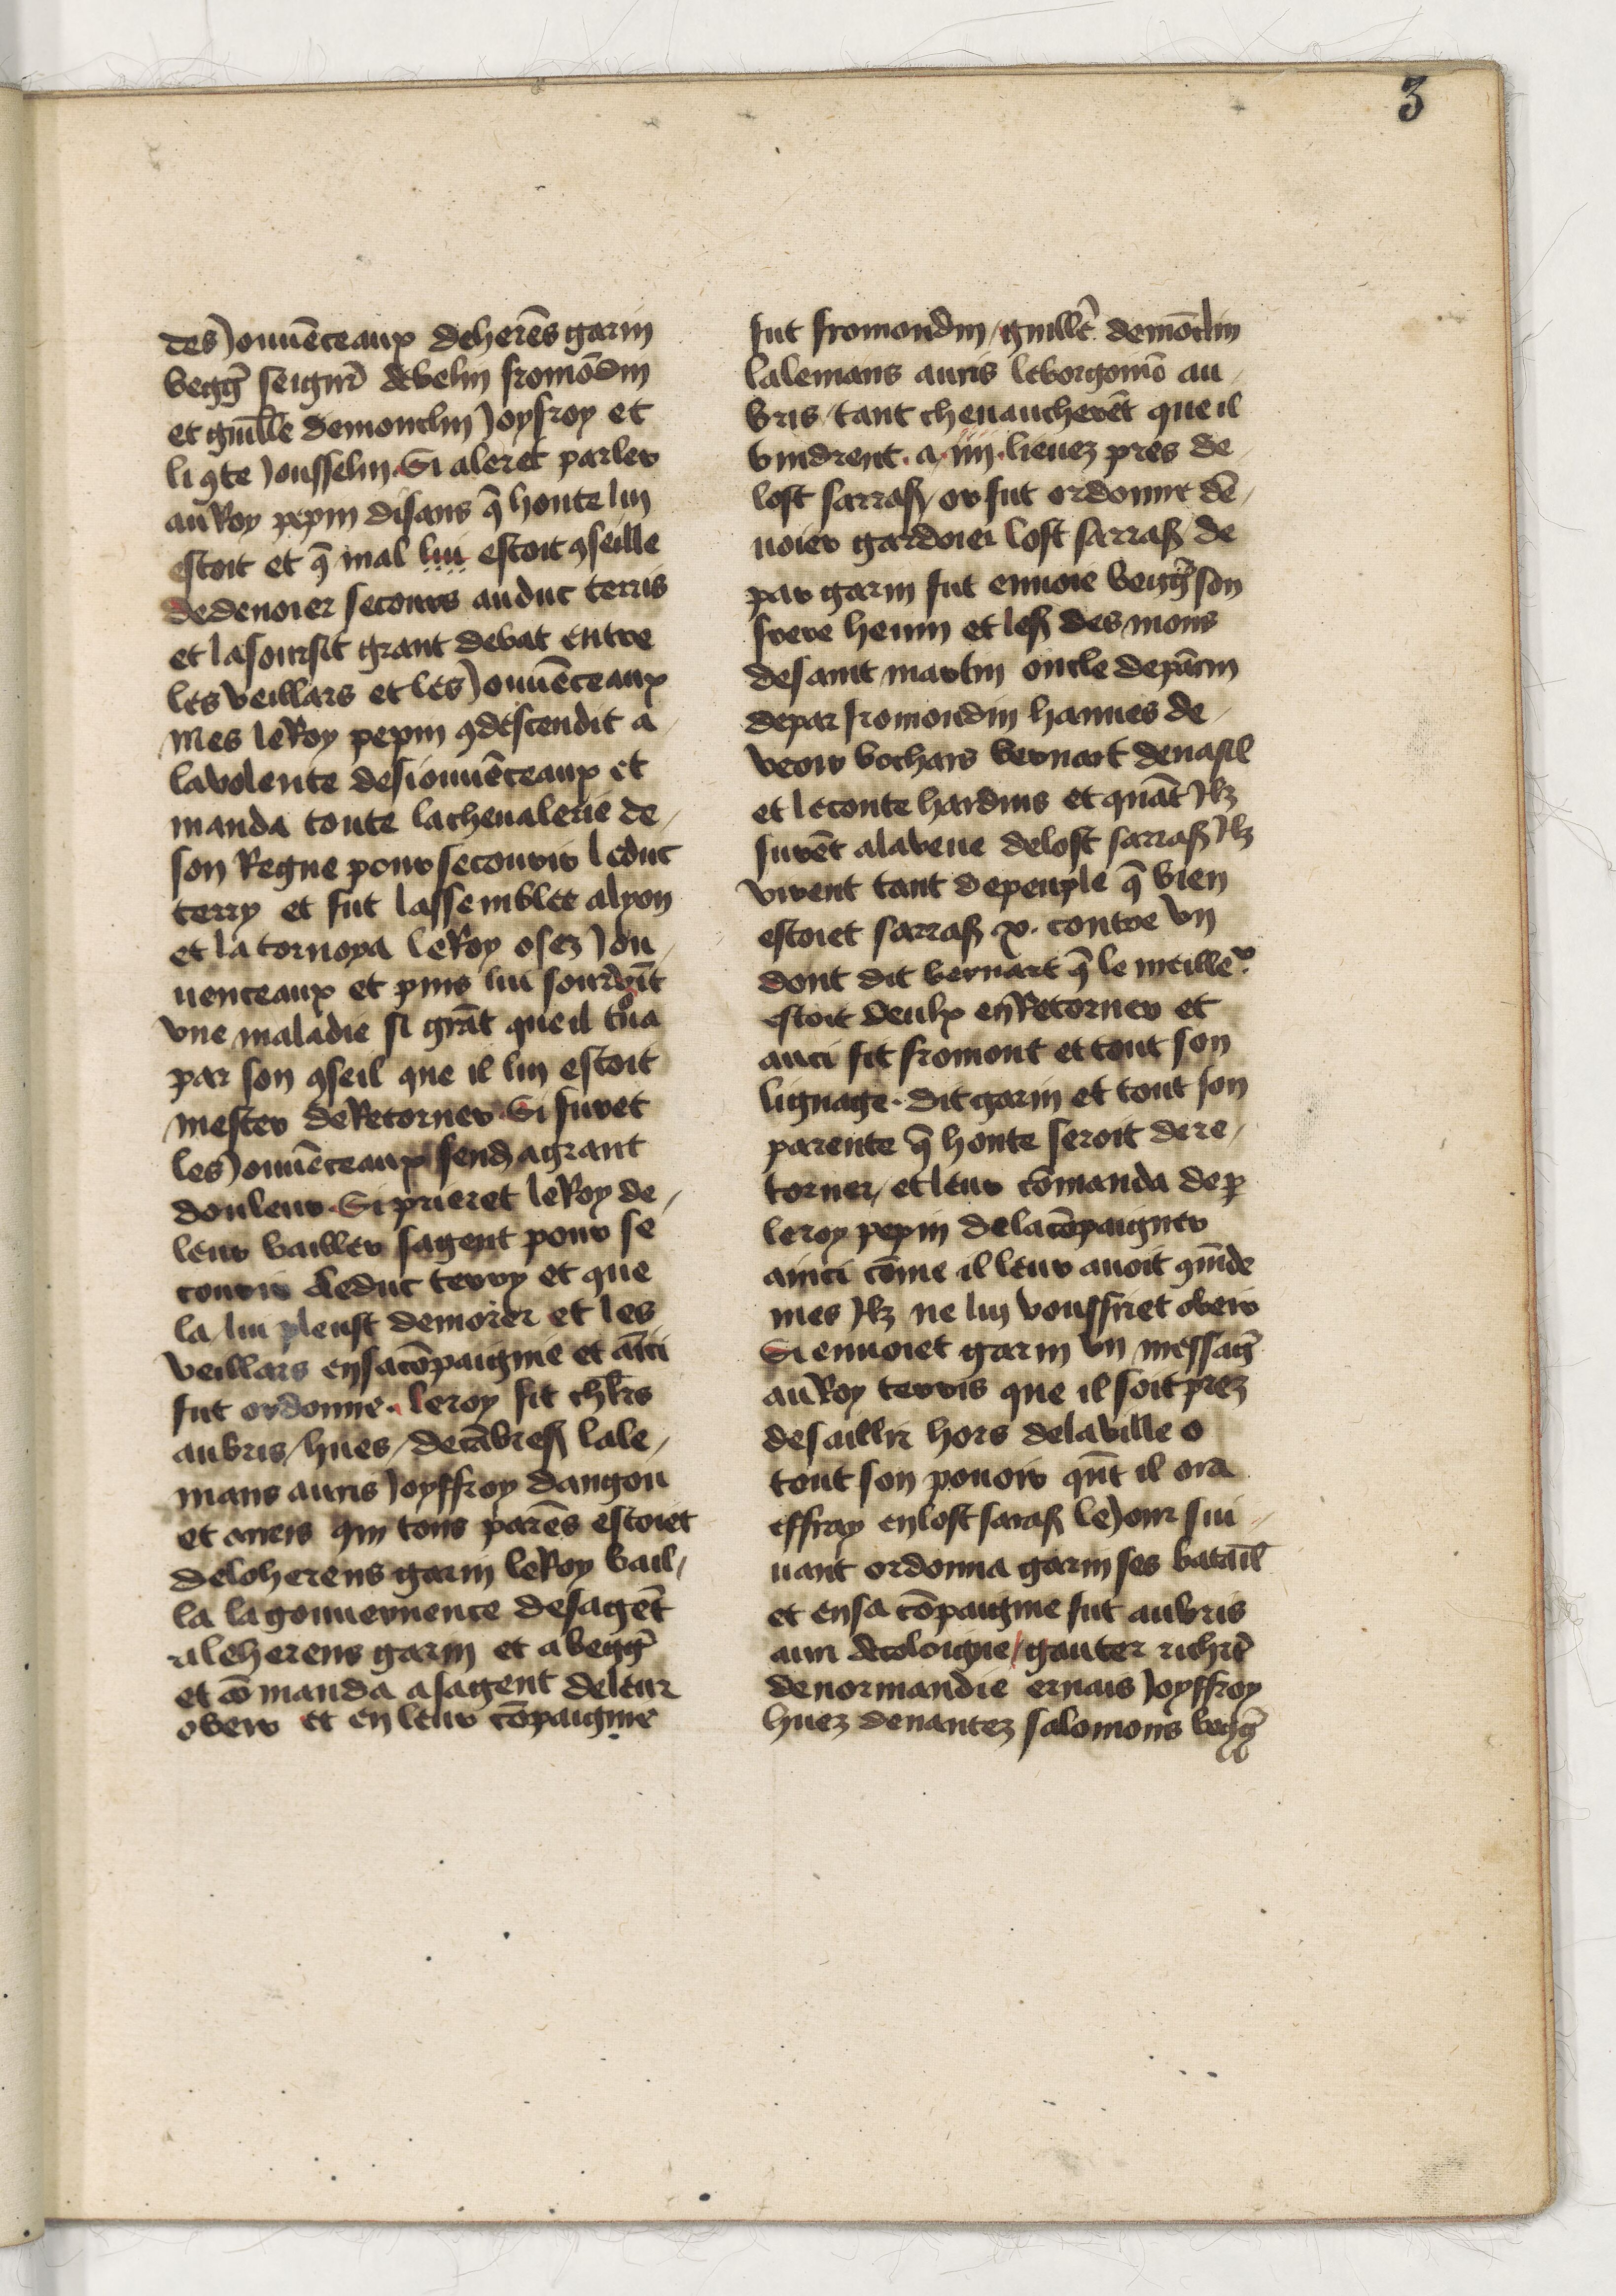 3
des Jouuēceaux deherēs garin
begg̃ seignr̃ debelin fromōdin
et guill̃e demonclin Joyfroy et
li ꝯte Jousselin. Si aleret parler
au Roy pepin disans q̃ honte lui
estoit et q̃ mal lui estoit ꝯseille
de denoier secours auduc terris
et lasoursit grant debat entre
les veillars et les Jouuēceaux
mes le Roy pepin ꝯdescendit a
lavolente desiouuēceaux et
manda toute lacheualerie de
son Regne pour secourir leduc
terry et fut lassemblee alyon
et la tornoya le Roy o sez Jou
uenceaux et puis lui sourdit
vne maladie si grāt que il tu͛a
par son ꝯseil que il lui estoit
mester de Retorner. Si furet
les Jouuēceaux send̃ agrant
douleur. Si prieret le Roy de
leur bailler sagent pour se
courir leduc terry et que
la lui pleust demorer et les
veillars ensacōpaignie et aīci
fut ordonne. leroy fit chl̃rs
aubris / hues / decābreß lale
mans auris Joyffroy dangou
et aneis qui tous parēs estoiet
deloherens garin le Roy bail
la lagouuernence desagēt
aleherens garin et abegg̃
et cōmanda asagent deleur
obeir et en leur cōpaignie
fut fromondin / guill̃e demōclin
lalemans auris leborgoinō au
bris / tant cheuaucherēt que il
vindrent . a . iiii . lieuez pres de
lost sarraß / or fut ordonne dē
uoier gardoier lost sarraß de
par garin fut enuoie begg̃ son
frere henin et leß des mons
desaint martin oncle depārin
depar fromondin hannes de
veoir bochars bernart denasil
et leconte hardins et quāt Jlz
furēt alaveue delost sarraß Jlz
virent tant depeuple q̃ bien
estoiet sarraß x. contre vn
dont dit bernart q̃ le meille͛
estoit deulx en Retorner et
auci fit fromont et tout son
lignage. dit garin et tout son
parente q̃ honte seroit dere
torner / et leur cōmanda deꝑ
leroy pepin delacōpaigner
ainci cōme il leur auoit ꝯmādé
mes Jlz ne lui vousfriet obeir
Si enuoiet garin vn messag̃
au Roy terris que il soit prez
desaillir hors delaville o
tout son pouoir qñt il ora
effray en lost saraß le Jour sui
uant ordonna garin ses batail̃
et ensa cōpaignie fut aubris
auri decoloigne / gauter richr̃
denormandie ernais Joyffroy
huez denantez salomons begg̃